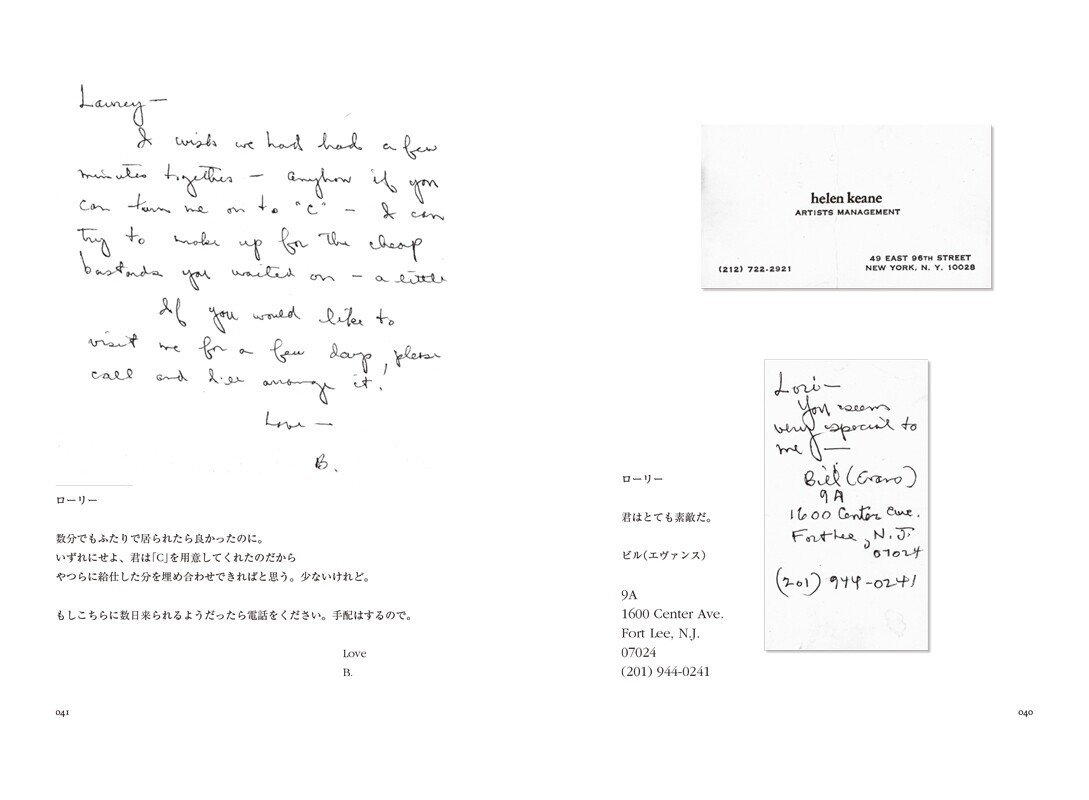 Laurey —
I wish we had had a few
minutes together — anyhow if you
can turn me on to "C" — I can
try to make up for the cheap
bastards you waited on — a little
If you would like to
visit me for a few days, please
call and I'll arrange it!
Love —
B.
ローリー
数分でもふたりで居られたら良かったのに。
いずれにせよ、君は「C」を用意してくれたのだから
やつらに給仕した分を埋め合わせできればと思う。少ないけれど。
もしこちらに数日来られるようだったら電話をください。手配はするので。
Love
B.
041
helen keane
ARTISTS MANAGEMENT
(212) 722-2921
49 EAST 96TH STREET
NEW YORK, N. Y. 10028
Lori —
You seem
very special to
me —
Bill (Evans)
9A
1600 Center Ave.
Fort Lee, N.J.
07024
(201) 944-0241
ローリー
君はとても素敵だ。
ビル(エヴァンス)
9A
1600 Center Ave.
Fort Lee, N.J.
07024
(201) 944-0241
040